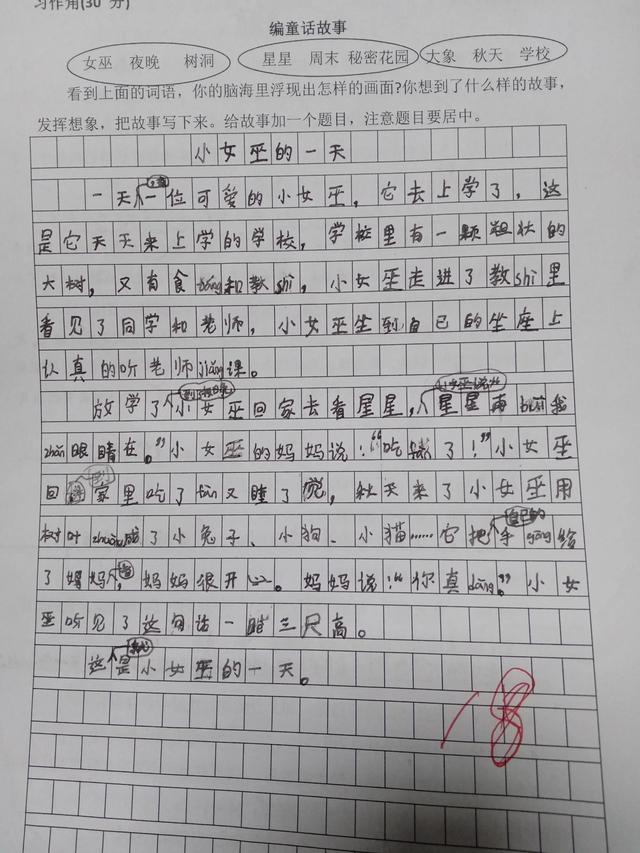 习作角(30 分)
编童话故事
女巫 夜晚 树洞 星星 周末 秘密花园 大象 秋天 学校
看到上面的词语，你的脑海里浮现出怎样的画面?你想到了什么样的故事，
发挥想象，把故事写下来。给故事加一个题目，注意题目要居中。
小女巫的一天
一天一位可爱的小女巫，它去上学了，这
是它天天来上学的学校，学校里有一颗粗壮的
大树，又有食táng和教shì，小女巫走进了教shì里
看见了同学和老师，小女巫坐到自己的坐座上
认真的听老师jiǎng课。
放学了小女巫回家去看星星，小女巫说 星星再 我
zhǎ眼睛在。”小女巫的妈妈说：“吃饭了！”小女巫
回到家里吃了fàn又睡了觉，秋天来了小女巫用
树叶zhuāng成了小兔子、小狗、小猫……它把自己的手gōng给
了妈妈，妈妈很开心。妈妈说：“你真bàng。”小女
巫听见了这句话一蹦三尺高。
这就是小女巫的一天。
18